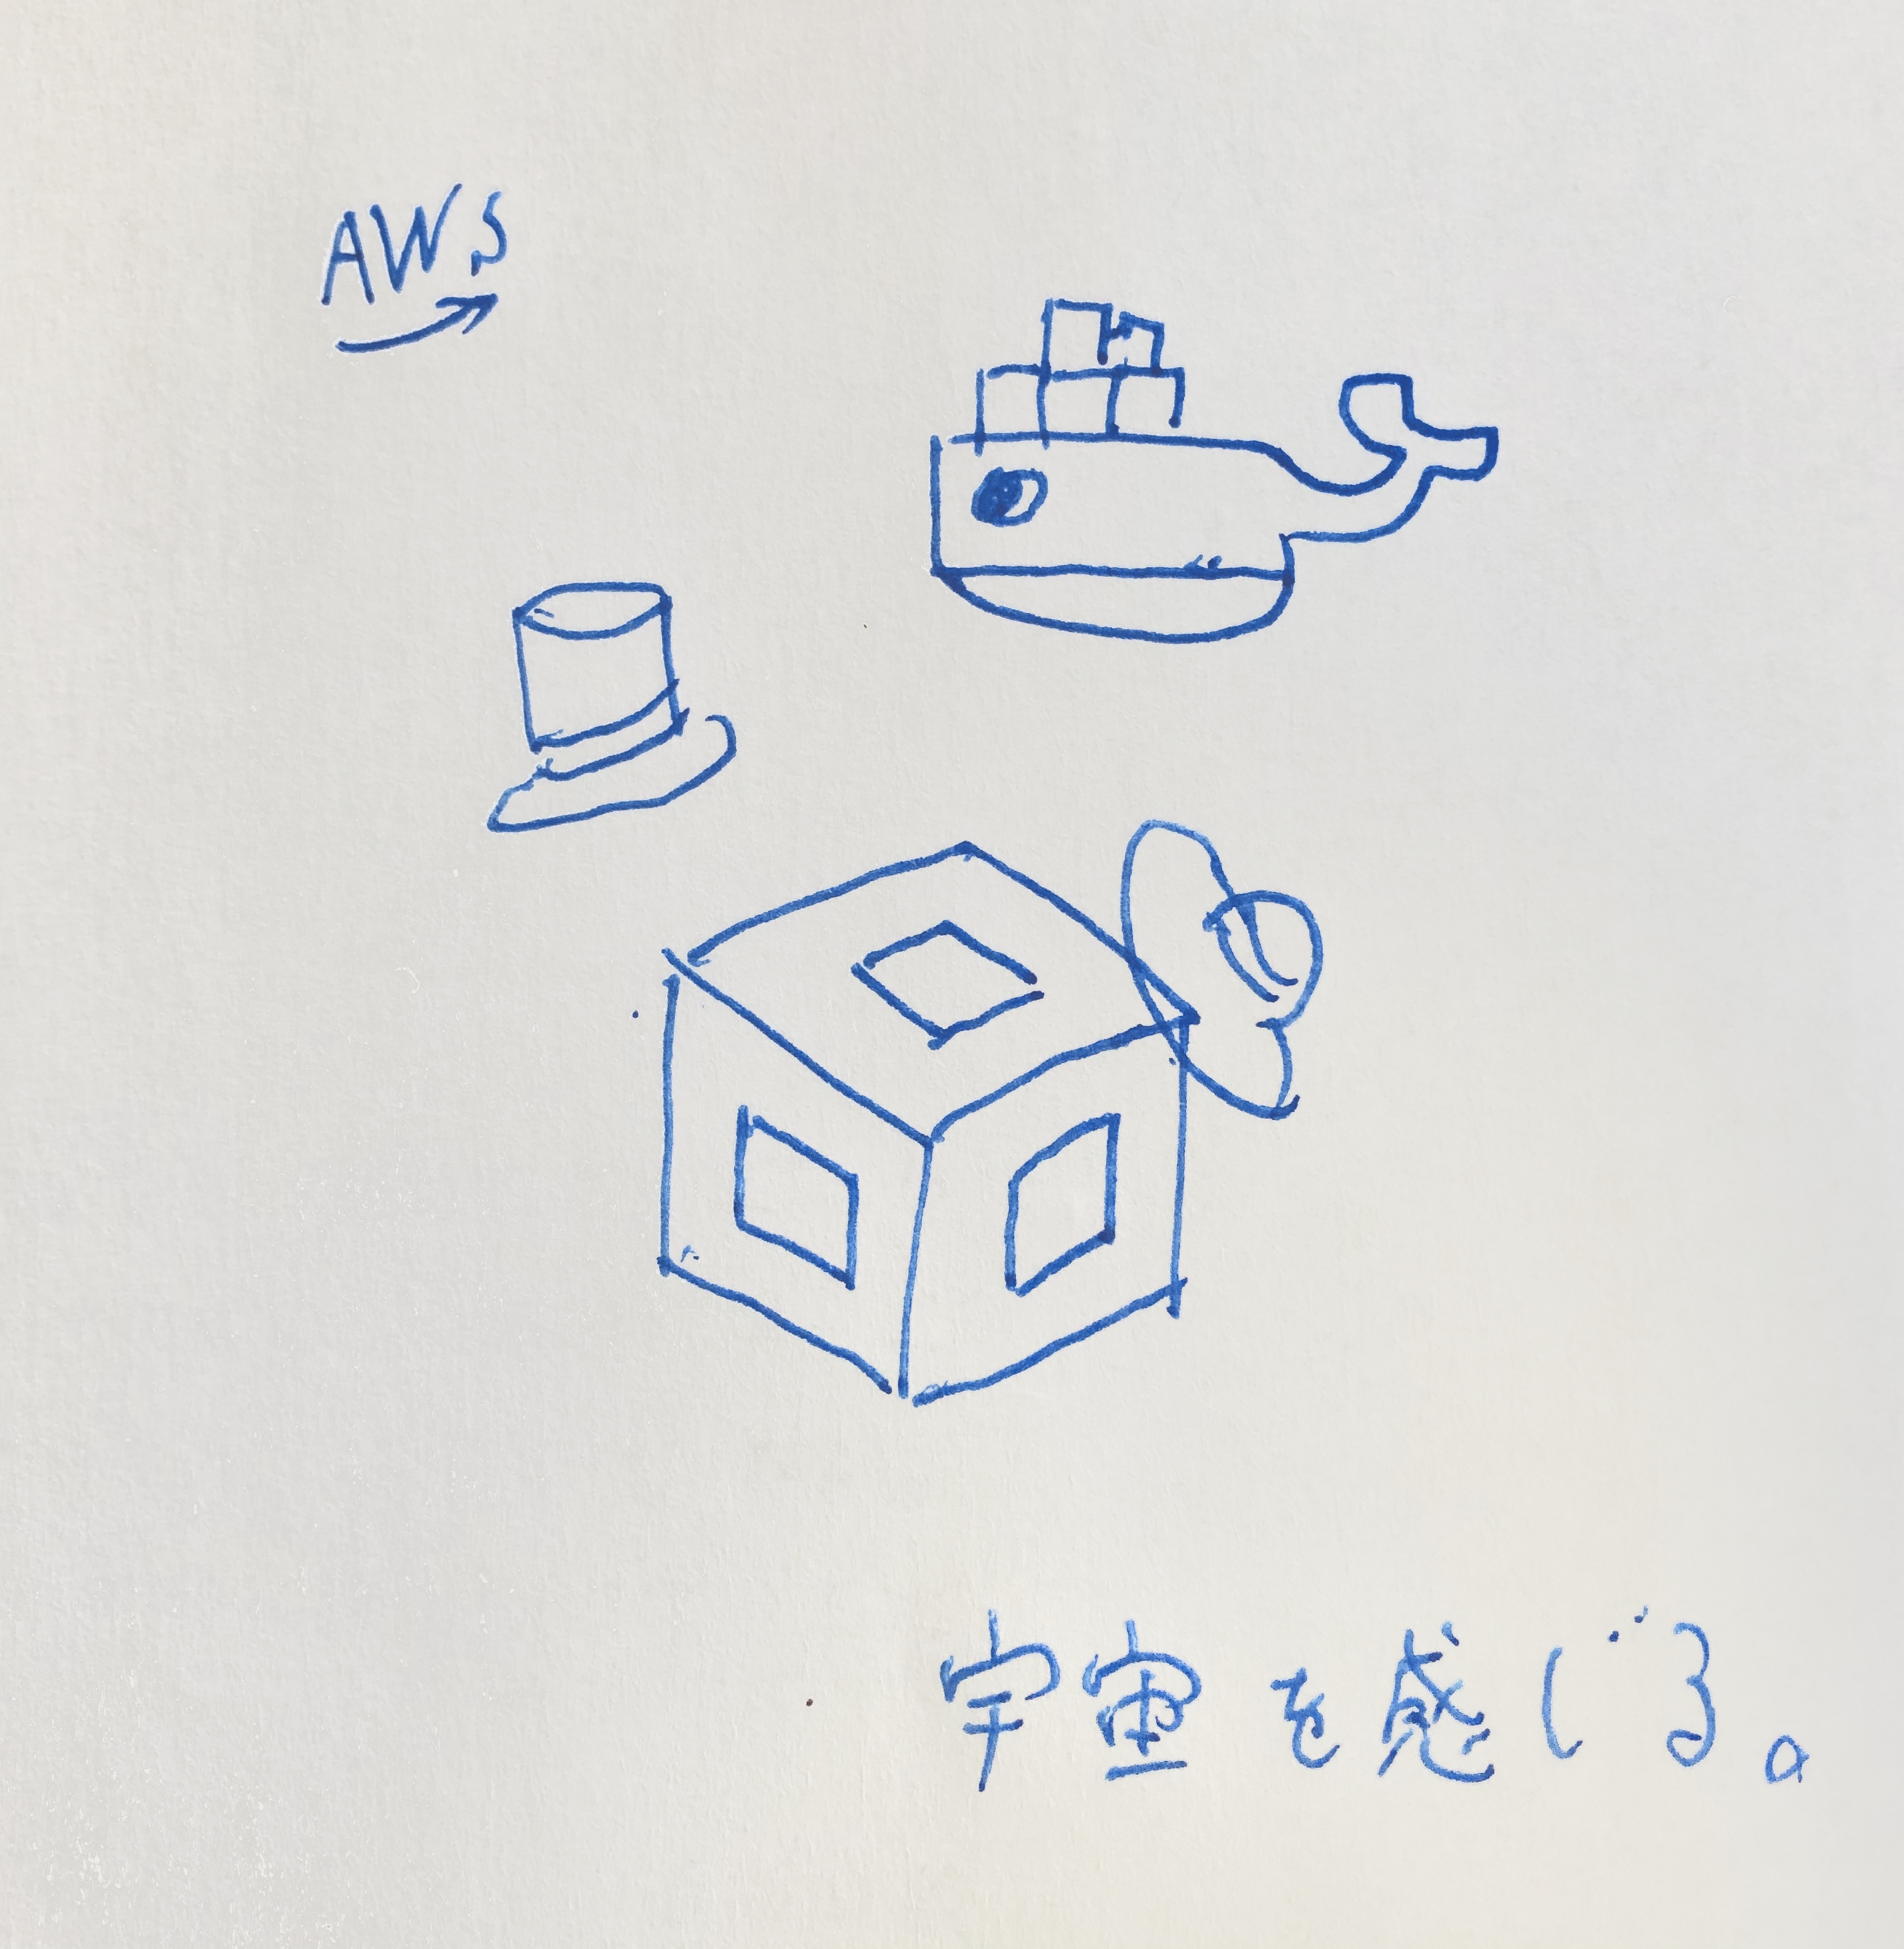 AWS
宇宙を感じる。